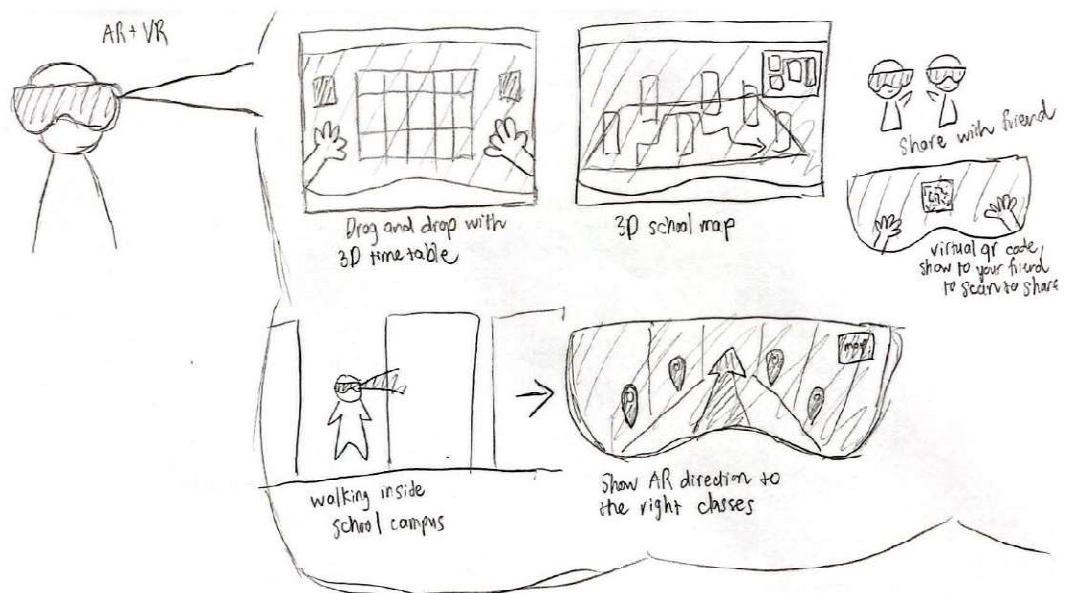 AR+VR
Drag and drop with
3D timetable
3D school map
Share with friend
virtual qr code,
show to your friend
to scan to share
map
walking inside
school campus
Show AR direction to
the right classes